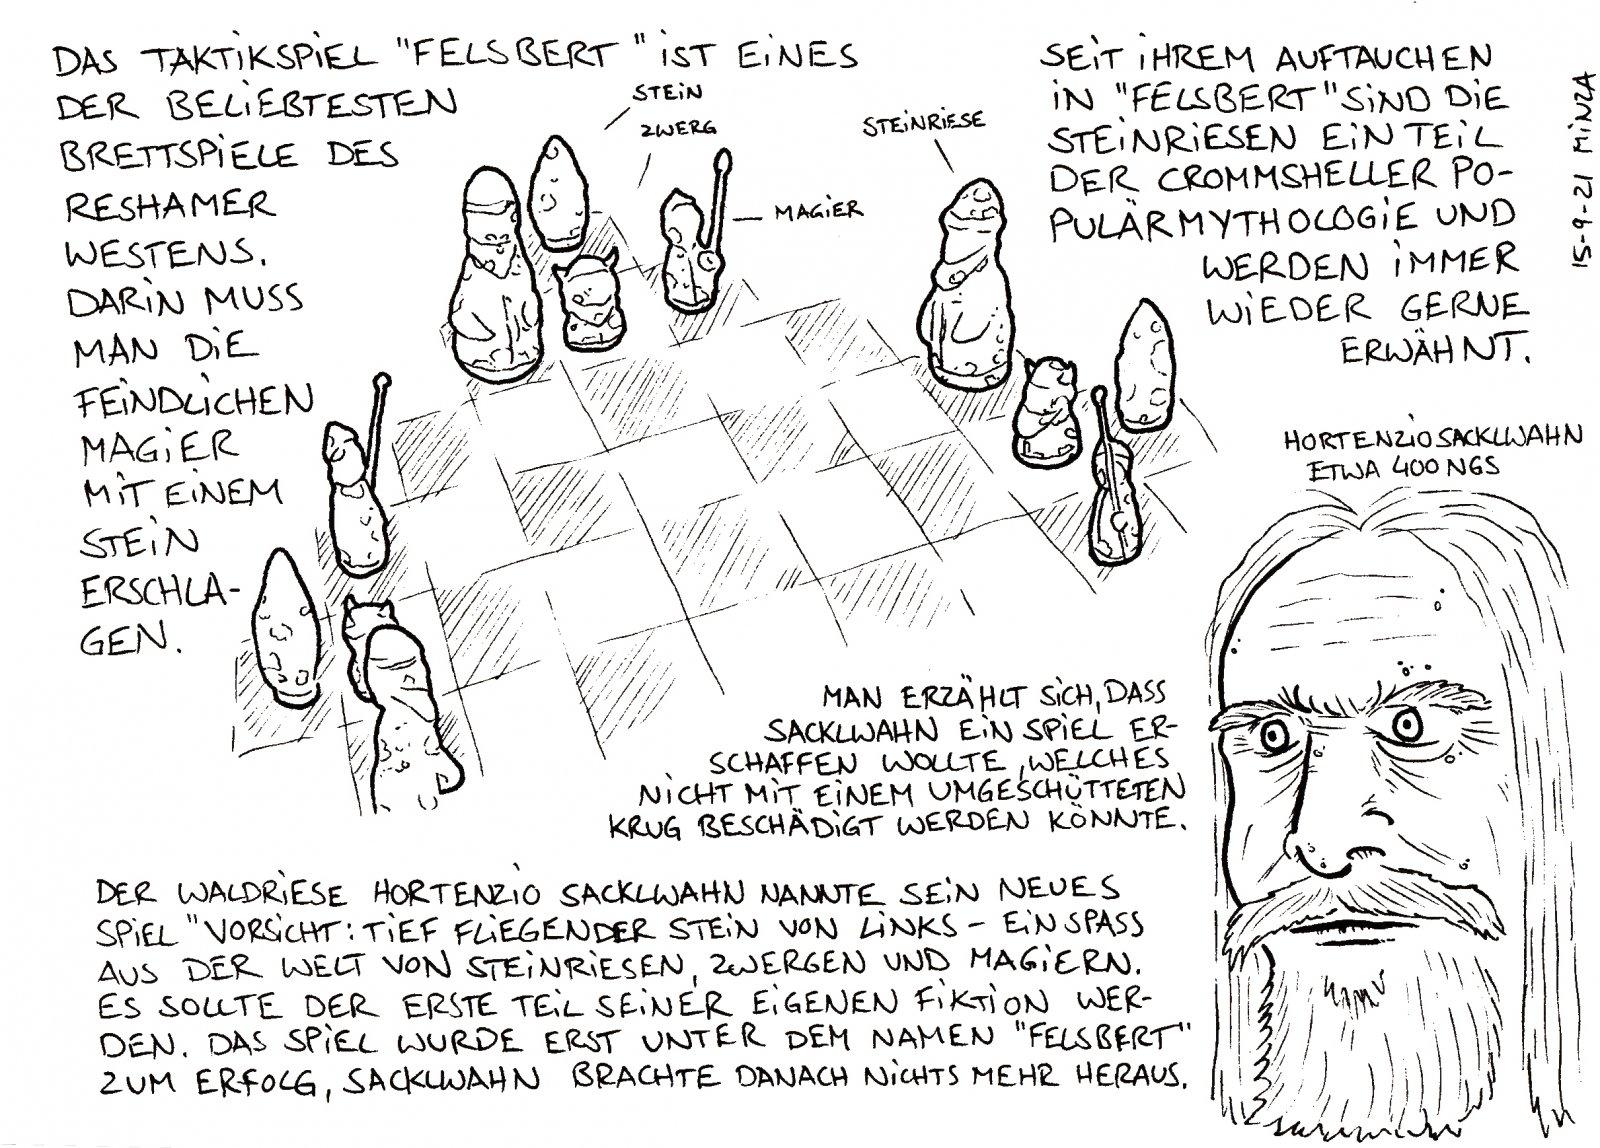 DAS TAKTIKSPIEL "FELSBERT" IST EINES
DER BELIEBTESTEN
BRETTSPIELE DES
RESHAMER
WESTENS.
DARIN MUSS
MAN DIE
FEINDLICHEN
MAGIER
MIT EINEM
STEIN
ERSCHLA-
GEN.
STEIN
ZWERG
MAGIER
STEINRIESE
SEIT IHREM AUFTAUCHEN
IN "FELSBERT" SIND DIE
STEINRIESEN EIN TEIL
DER CROMMSHELLER PO-
PULÄRMYTHOLOGIE UND
WERDEN IMMER
WIEDER GERNE
ERWÄHNT.
15-9-21 MINZA
HORTENZIO SACKLWAHN
ETWA 400 NGS
MAN ERZÄHLT SICH, DASS
SACKLWAHN EIN SPIEL ER-
SCHAFFEN WOLLTE, WELCHES
NICHT MIT EINEM UMGESCHÜTTETEN
KRUG BESCHÄDIGT WERDEN KÖNNTE.
DER WALDRIESE HORTENZIO SACKLWAHN NANNTE SEIN NEUES
SPIEL "VORSICHT: TIEF FLIEGENDER STEIN VON LINKS - EIN SPASS
AUS DER WELT VON STEINRIESEN, ZWERGEN UND MAGIERN.
ES SOLLTE DER ERSTE TEIL SEINER EIGENEN FIKTION WER-
DEN. DAS SPIEL WURDE ERST UNTER DEM NAMEN "FELSBERT"
ZUM ERFOLG, SACKLWAHN BRACHTE DANACH NICHTS MEHR HERAUS.